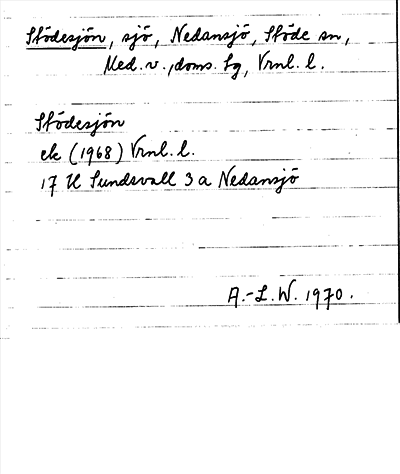 Stödesjön, sjö, Nedansjö, Stöde sn,
Med. v., doms. sg, Vrnl. l.
Stödesjön
ek (1968) Vrnl. l.
17 H Sundsvall 3 a Nedansjö
A.-L. W. 1970.